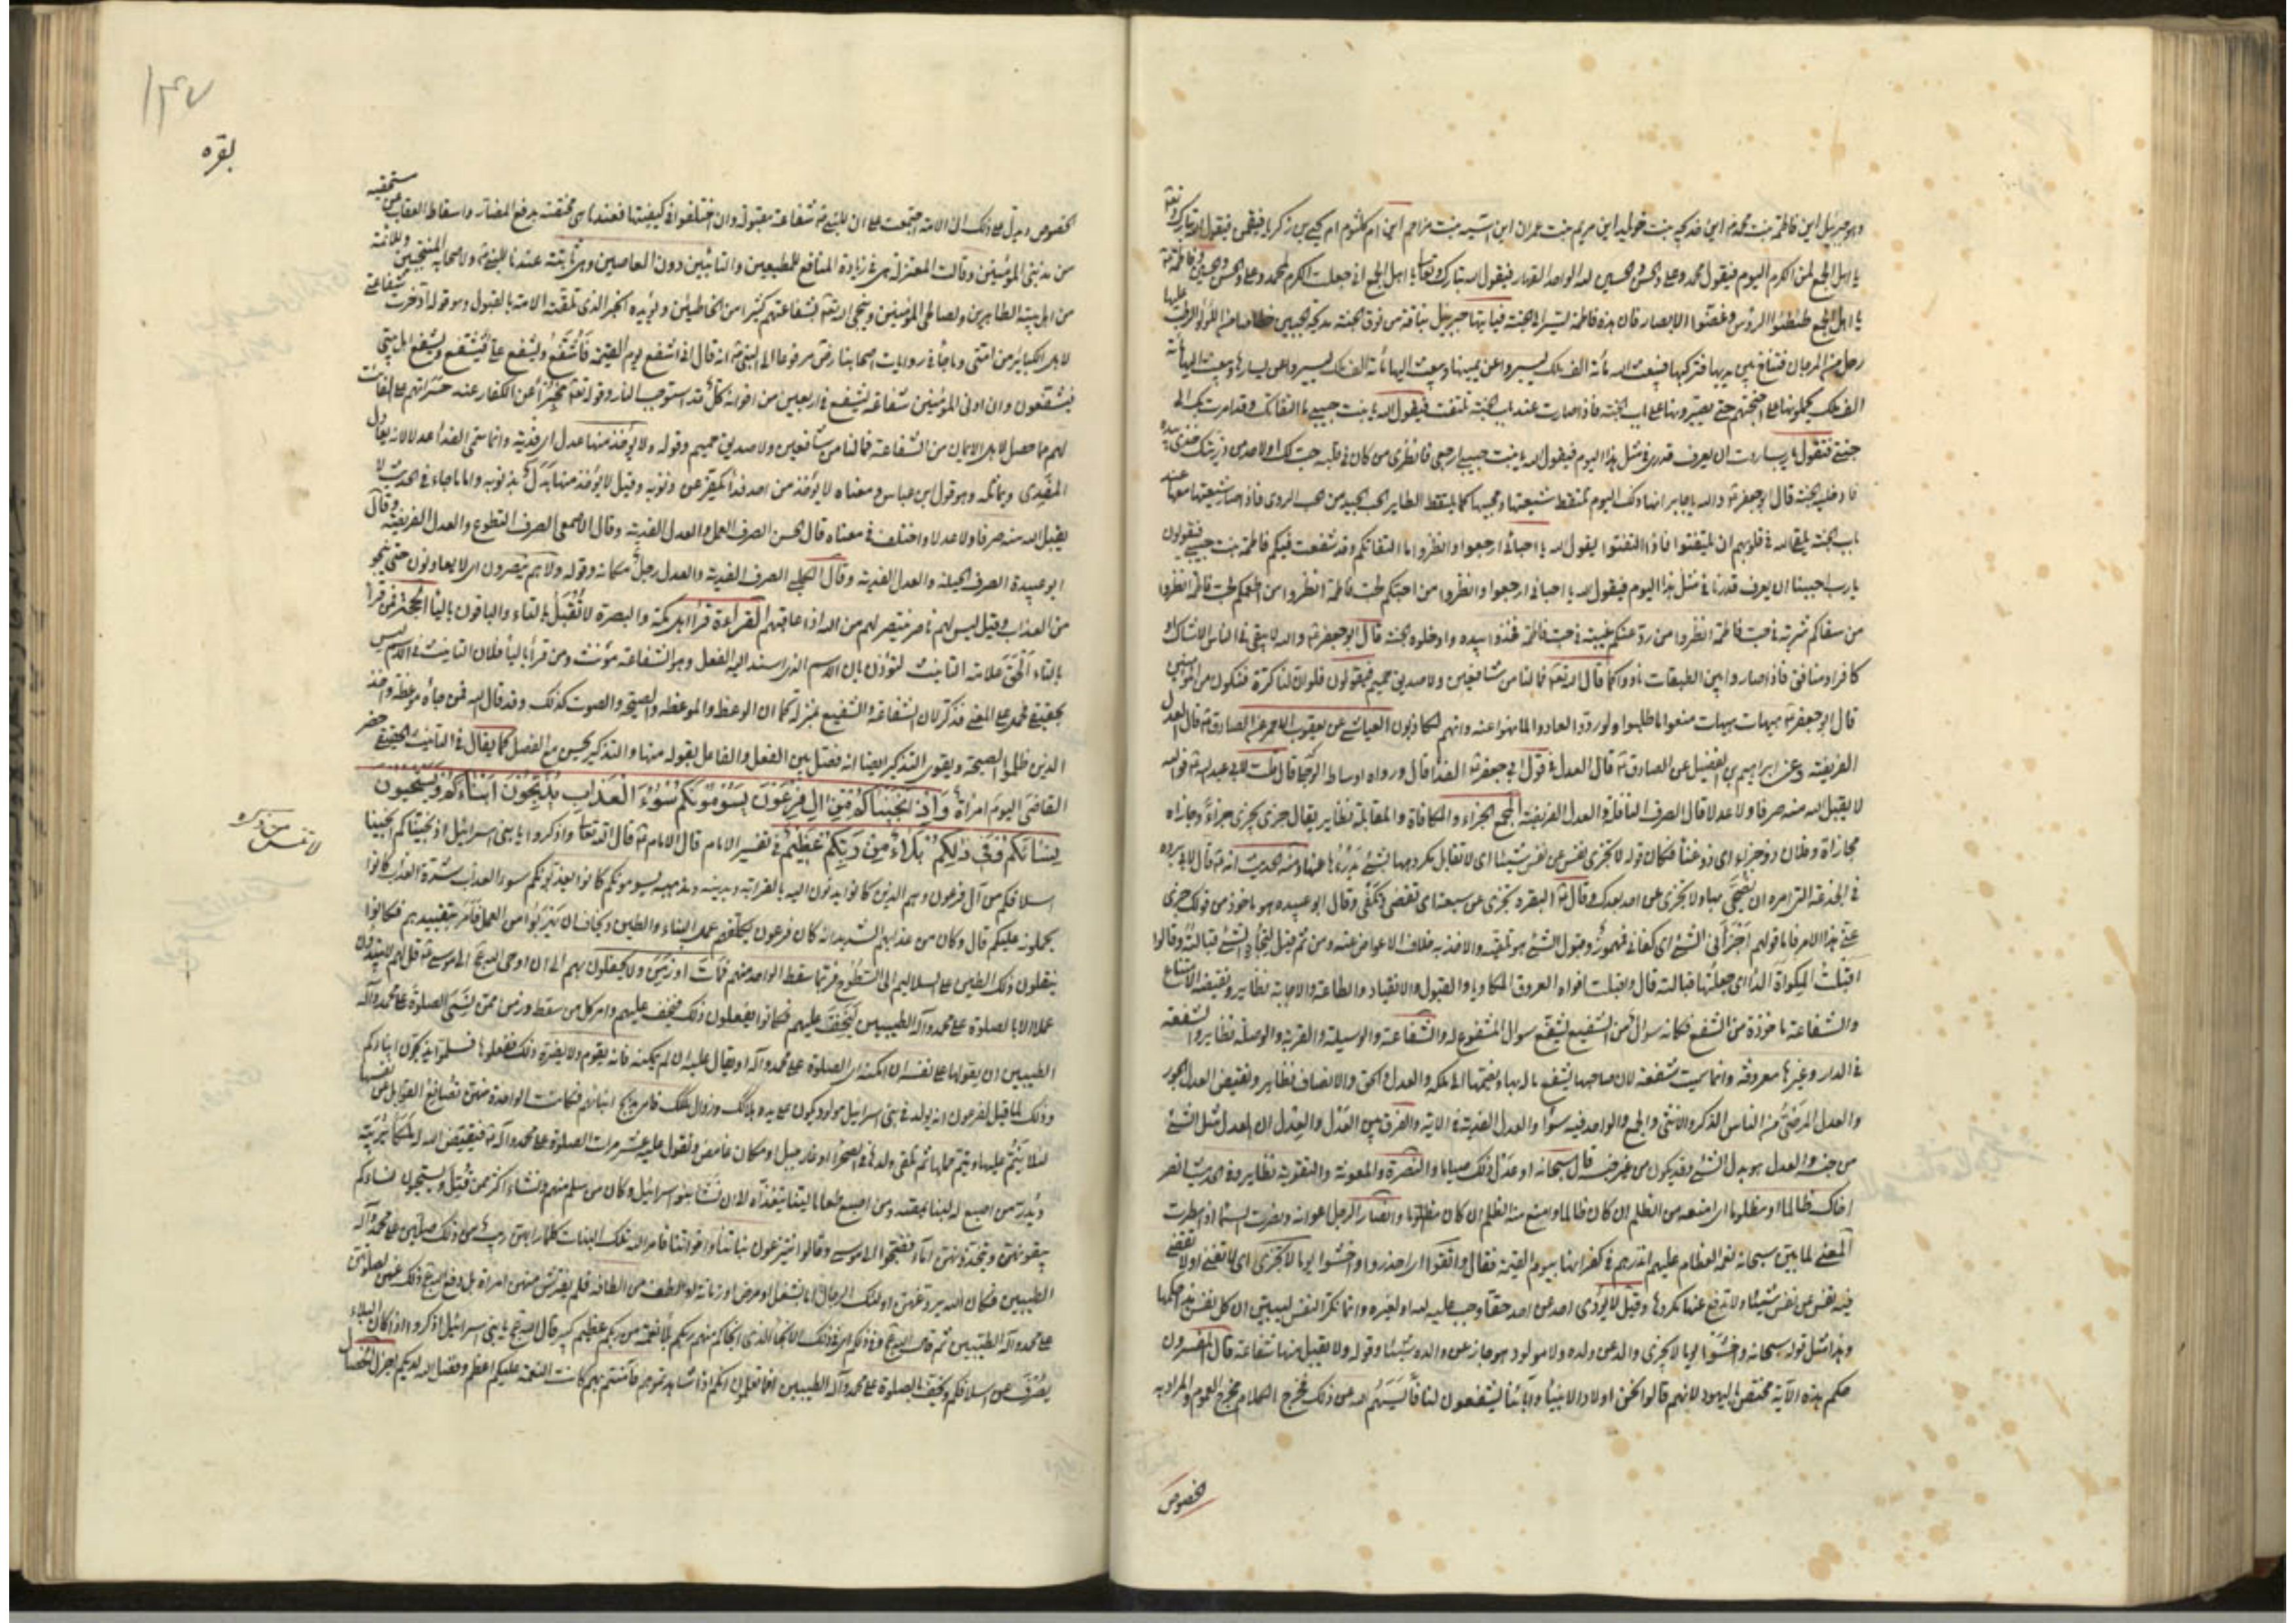 وهو جبرئيل اين فاطمة بنت محمد اين خديجة بنت خويلد اين مريم بنت عمران اين آسية بنت مزاحم اين ام كلثوم ام يحيى بن زكريا فيقمن فيقول الله تبارك وتعالى
يا اهل الجمع لمن الكرم اليوم فيقول محمد وعلي والحسن والحسين لله الواحد القهار فيقول الله تبارك وتعالى يا اهل الجمع اني جعلت الكرم لمحمد وعلي والحسن والحسين وفاطمة
يا اهل الجمع طأطئوا الرؤس وغضوا الابصار فان هذه فاطمة تسير الى الجنة فيأتيها جبرئيل بناقة من نوق الجنة مدبجة الجنبين خطامها من اللؤلؤ الرطب عليها
رحل من المرجان فتناخ بين يديها فتركبها فيبعث الله مائة الف ملك ليسيروا عن يمينها ويبعث اليها مائة الف ملك ليسيروا عن يسارها ويبعث اليها مائة
الف ملك يحملونها على اجنحتهم حتى يصيرونها على باب الجنة فاذا صارت عند باب الجنة تلتفت فيقول الله يا بنت حبيبي ما التفاتك وقد امرت بك الى
جنتي فتقول يا رب احببت ان يعرف قدري في مثل هذا اليوم فيقول الله يا بنت حبيبي ارجعي فانظري من كان في قلبه حب لك او لاحد من ذريتك خذي بيده
فادخليه الجنة قال ابو جعفر والله يا جابر انها ذلك اليوم لتلتقط شيعتها ومحبيها كما يلتقط الطاير الحب الجيد من الحب الردي فاذا صار شيعتها معها عند
باب الجنة يلقي الله في قلوبهم ان يلتفتوا فاذا التفتوا يقول الله يا احبائي ارجعوا وانظروا ما التفاتكم وقد شفعت فيكم فاطمة بنت حبيبي فيقولون
يا رب احببنا ان يعرف قدرنا في مثل هذا اليوم فيقول الله يا احبائي ارجعوا وانظروا من احبكم لحب فاطمة انظروا من اطعمكم لحب فاطمة انظروا
من سقاكم شربة في حب فاطمة انظروا من رد عنكم غيبة في حب فاطمة فخذوا بيده وادخلوه الجنة قال ابو جعفر والله لا يبقى في الناس الا شاك او
كافر او منافق فاذا صاروا بين الطبقات نادوا كما قال الله تعالى فما لنا من شافعين ولا صديق حميم فيقولون فلو ان لنا كرة فنكون من المؤمنين
قال ابو جعفر هيهات هيهات منعوا ما طلبوا ولو ردوا لعادوا لما نهوا عنه وانهم لكاذبون العياشي عن يعقوب الاحمر عن الصادق قال العدل
الفريضة وعن ابراهيم بن الفضيل عن الصادق قال العدل في قول ابي جعفر الفداء قال ورواه اسباط الزطي قال قلت لابي عبد الله قول الله
لا يقبل الله منه صرفا ولا عدلا قال الصرف النافلة والعدل الفريضة المجمع الجزاء والمكافاة والمقابلة نظاير يقال جزى يجزي جزاء وجازاه
مجازاة وفلان ذو جزاء اي ذو غناء فكان قوله لا تجزي نفس عن نفس شيئا اي لا تقابل مكروهها بشيء يدرأه عنها ومنه الحديث انه قال لابي بردة
في الجذعة التي امره ان يضحي بها ولا تجزي عن احد بعدك وقال البقرة تجزي عن سبعة اي تقضي وتكفي وقال ابو عبيده هو ماخوذ من قولك جزى
عني هذا الامر فاما قولهم اجزأني الشيء اي كفاني فمهموز وقبول الشيء هو تلقيه والاخذ به خلاف الاعراض عنه ومن ثم قيل لتجاه الشيء قبالته وقالوا
اقبلت المكواة الداء اي جعلتها قبالته قال واقبلت افواه العروق المكاويا والقبول والانقياد والطاعة والاجابة نظاير ونقيضه الامتناع
والشفاعة ماخوذة من الشفع فكانه سؤال من الشفيع يشفع سؤال المشفوع له والشفاعة والوسيلة والقربة والوصلة نظاير والشفعة
في الدار وغيرها معروفة وانما سميت شفعة لان صاحبها يشفع ماله بها ويضمها الى ملكه والعدل والحق والانصاف نظاير ونقيض العدل الجور
والعدل المرضي من الناس الذكر والانثى والجمع والواحد فيه سواء والعدل الفدية في الاية والفرق بين العدل والعدل ان العدل مثل الشيء
من جنسه والعدل هو بدل الشيء وقد يكون من غير جنسه قال سبحانه او عدل ذلك صياما والنصرة والمعونة والتقوية نظاير وفي الحديث انصر
اخاك ظالما او مظلوما اي امنعه من الظلم ان كان ظالما وامنع منه الظلم ان كان مظلوما وانصار الرجل اعوانه ونصرت السماء اذا امطرت
المعنى لما بين سبحانه نعمه العظام عليهم انذرهم في كفرانها بيوم القيمة فقال واتقوا اي احذروا واخشوا يوما لا تجزي اي لا تغني او لا تقضي
فيه نفس عن نفس شيئا ولا تدفع عنها مكروها وقيل لا يؤدي احد عن احد حقا وجب عليه لله او لغيره وانما نكر النفس ليبين ان كل نفس فهذا حكمها
وهذا مثل قوله سبحانه واخشوا يوما لا يجزي والد عن ولده ولا مولود هو جاز عن والده شيئا وقوله ولا يقبل منها شفاعة قال المفسرون
حكم هذه الآية مختص باليهود لانهم قالوا نحن اولاد الانبياء وآباؤنا يشفعون لنا فايسهم الله عن ذلك فخرج الكلام مخرج العموم والمراد به
الخصوص
١٤٧
بقره
الخصوص ويدل على ذلك ان الامة اجتمعت على ان للنبي شفاعة مقبولة وان اختلفوا في كيفيتها فعندنا هي مختصة بدفع المضار واسقاط العقاب عن مستحقيه
من مذنبي المؤمنين وقالت المعتزلة هي في زيادة المنافع للمطيعين والتائبين دون العاصين وهي ثابتة عندنا للنبي ولاصحابه المنتجبين وللائمة
من اهل بيته الطاهرين ولصالحي المؤمنين وينجي الله تعالى بشفاعتهم كثيرا من الخاطئين ويؤيده الخبر الذي تلقته الامة بالقبول وهو قوله ادخرت شفاعتي
لاهل الكبائر من امتي وما جاء في روايات اصحابنا رض مرفوعا الى النبي انه قال اني اشفع يوم القيمة فاشفع ويشفع علي فيشفع ويشفع اهل بيتي
فيشفعون وان ادنى المؤمنين شفاعة ليشفع في اربعين من اخوانه كل قد استوجب النار وقوله تعالى مخبرا عن الكفار عند حسراتهم على الفائت
لهم مما حصل لاهل الايمان من الشفاعة فما لنا من شافعين ولا صديق حميم وقوله ولا يؤخذ منها عدل اي فدية وانما سمي الفداء عدلا لانه يعادل
المفدى ويماثله وهو قول ابن عباس ومعناه لا يؤخذ من احد فداء يكفر عن ذنوبه وقيل لا يؤخذ منها بدل بذنوبه واما ما جاء في الحديث لا
يقبل الله منه صرفا ولا عدلا واختلف في معناه قال الحسن الصرف العمل والعدل الفدية وقال الاصمعي الصرف التطوع والعدل الفريضة وقال
ابو عبيدة الصرف الحيلة والعدل الفدية وقال الكلبي الصرف الفدية والعدل رجل مكانه وقوله ولا هم ينصرون اي لا يعاونون حتى ينجو
من العذاب وقيل ليس لهم ناصر ينتصر لهم من الله اذا عاقبهم القراءة قرأ اهل مكة والبصرة لا تقبل بالتاء والباقون بالياء الحجة فمن قرأ
بالتاء الحق علامة التانيث لتؤذن بان الاسم الذي اسند اليه الفعل وهو الشفاعة مؤنث ومن قرأ بالياء فلان التانيث في الاسم ليس
بحقيقي فحمل على المعنى فذكر لان الشفاعة والتشفع بمنزلة كما ان الوعظ والموعظة والصيحة والصوت كذلك وقد قال الله فمن جاءه موعظة واخذ
الذين ظلموا الصيحة ويقوي التذكير ايضا انه فصل بين الفعل والفاعل بقوله منها والتذكير يحسن مع الفصل كما يقال في التانيث الحقيقي حضر
القاضي اليوم امرأة وَاِذْ نَجَّيْنَاكُمْ مِنْ الِ فِرْعَوْنَ يَسُوْمُوْنَكُمْ سُوْءَ الْعَذَابِ يُذَبِّحُوْنَ اَبْنَاءَكُمْ وَيَسْتَحْيُوْنَ
نِسَائَكُمْ وَفِيْ ذلِكُمْ بَلَاءٌ مِنْ رَبِّكُمْ عَظِيْمٌ في تفسير الامام قال الامام قال الله تعالى واذكروا يا بني اسرائيل اذ نجيناكم انجينا
اسلافكم من آل فرعون وهم الذين كانوا يدنون اليه بالقرابة وبدينه ومذهبه يسومونكم كانوا يعذبونكم سوء العذاب شدة العذاب كانوا
يحملونه عليكم قال وكان من عذابهم الشديد انه كان فرعون يكلفهم عمل البناء والطين ويخاف ان يهربوا من العمل فامر بتقييدهم فكانوا
ينقلون ذلك الطين على السلاليم الى السطوح فربما سقط الواحد منهم فمات او زمن ولا يحفلون بهم الى ان اوحى الله عج الى موسى قل لهم لا يبتدؤن
عملا الا بالصلوة على محمد وآله الطيبين ليخفف عليهم فكانوا يفعلون ذلك فيخفف عليهم وامر كل من سقط وزمن ممن نسي الصلوة على محمد وآله
الطيبين ان يقولها على نفسه ان امكنه اي الصلوة على محمد وآله او يقال عليه ان لم يمكنه فانه يقوم ولا يضره ذلك ففعلوها فسلموا يذبحون ابناءكم
وذلك لما قيل لفرعون انه يولد في بني اسرائيل مولود يكون على يده هلاكك وزوال ملكك فامر بذبح ابنائهم فكانت الواحدة منهن تصانع القوابل عن نفسها
لئلا ينم عليها ويتم حملها ثم تلقي ولدها في صحراء او غار جبل او مكان غامض وتقول عليه عشر مرات الصلوة على محمد وآله فيقيض الله له ملكا يربيه
ويدر من اصبع له لبنا يمصه ومن اصبع طعاما لينا يتغذاه الى ان نشأ بنو اسرائيل وكان من سلم منهم ونشأ اكثر ممن قتل ويستحيون نساءكم
يبقونهن ويتخذونهن اماء فضجوا الى موسى وقالوا يفترعون بناتنا واخواتنا فامر الله تلك البنات كلما رابهن ريب من ذلك صلين على محمد وآله
الطيبين فكان الله يرد عنهن اولئك الرجال اما بشغل او مرض او زمانة او لطف من الطافه فلم يفترش منهن امرأة بل دفع الله عج ذلك عنهن بصلوتهن
على محمد وآله الطيبين ثم قال الله عج وفي ذلكم اي في ذلك الانجاء الذي انجاكم منهم ربكم بلاء نعمة من ربكم عظيم كبير قال الله عج يا بني اسرائيل اذكروا اذ كان البلاء
يصرف عن اسلافكم ويخفف بالصلوة على محمد وآله الطيبين افما تعلمون انكم اذا شاهدتموهم فآمنتم بهم كانت النعمة عليكم اعظم وفضل الله لديكم اجزل